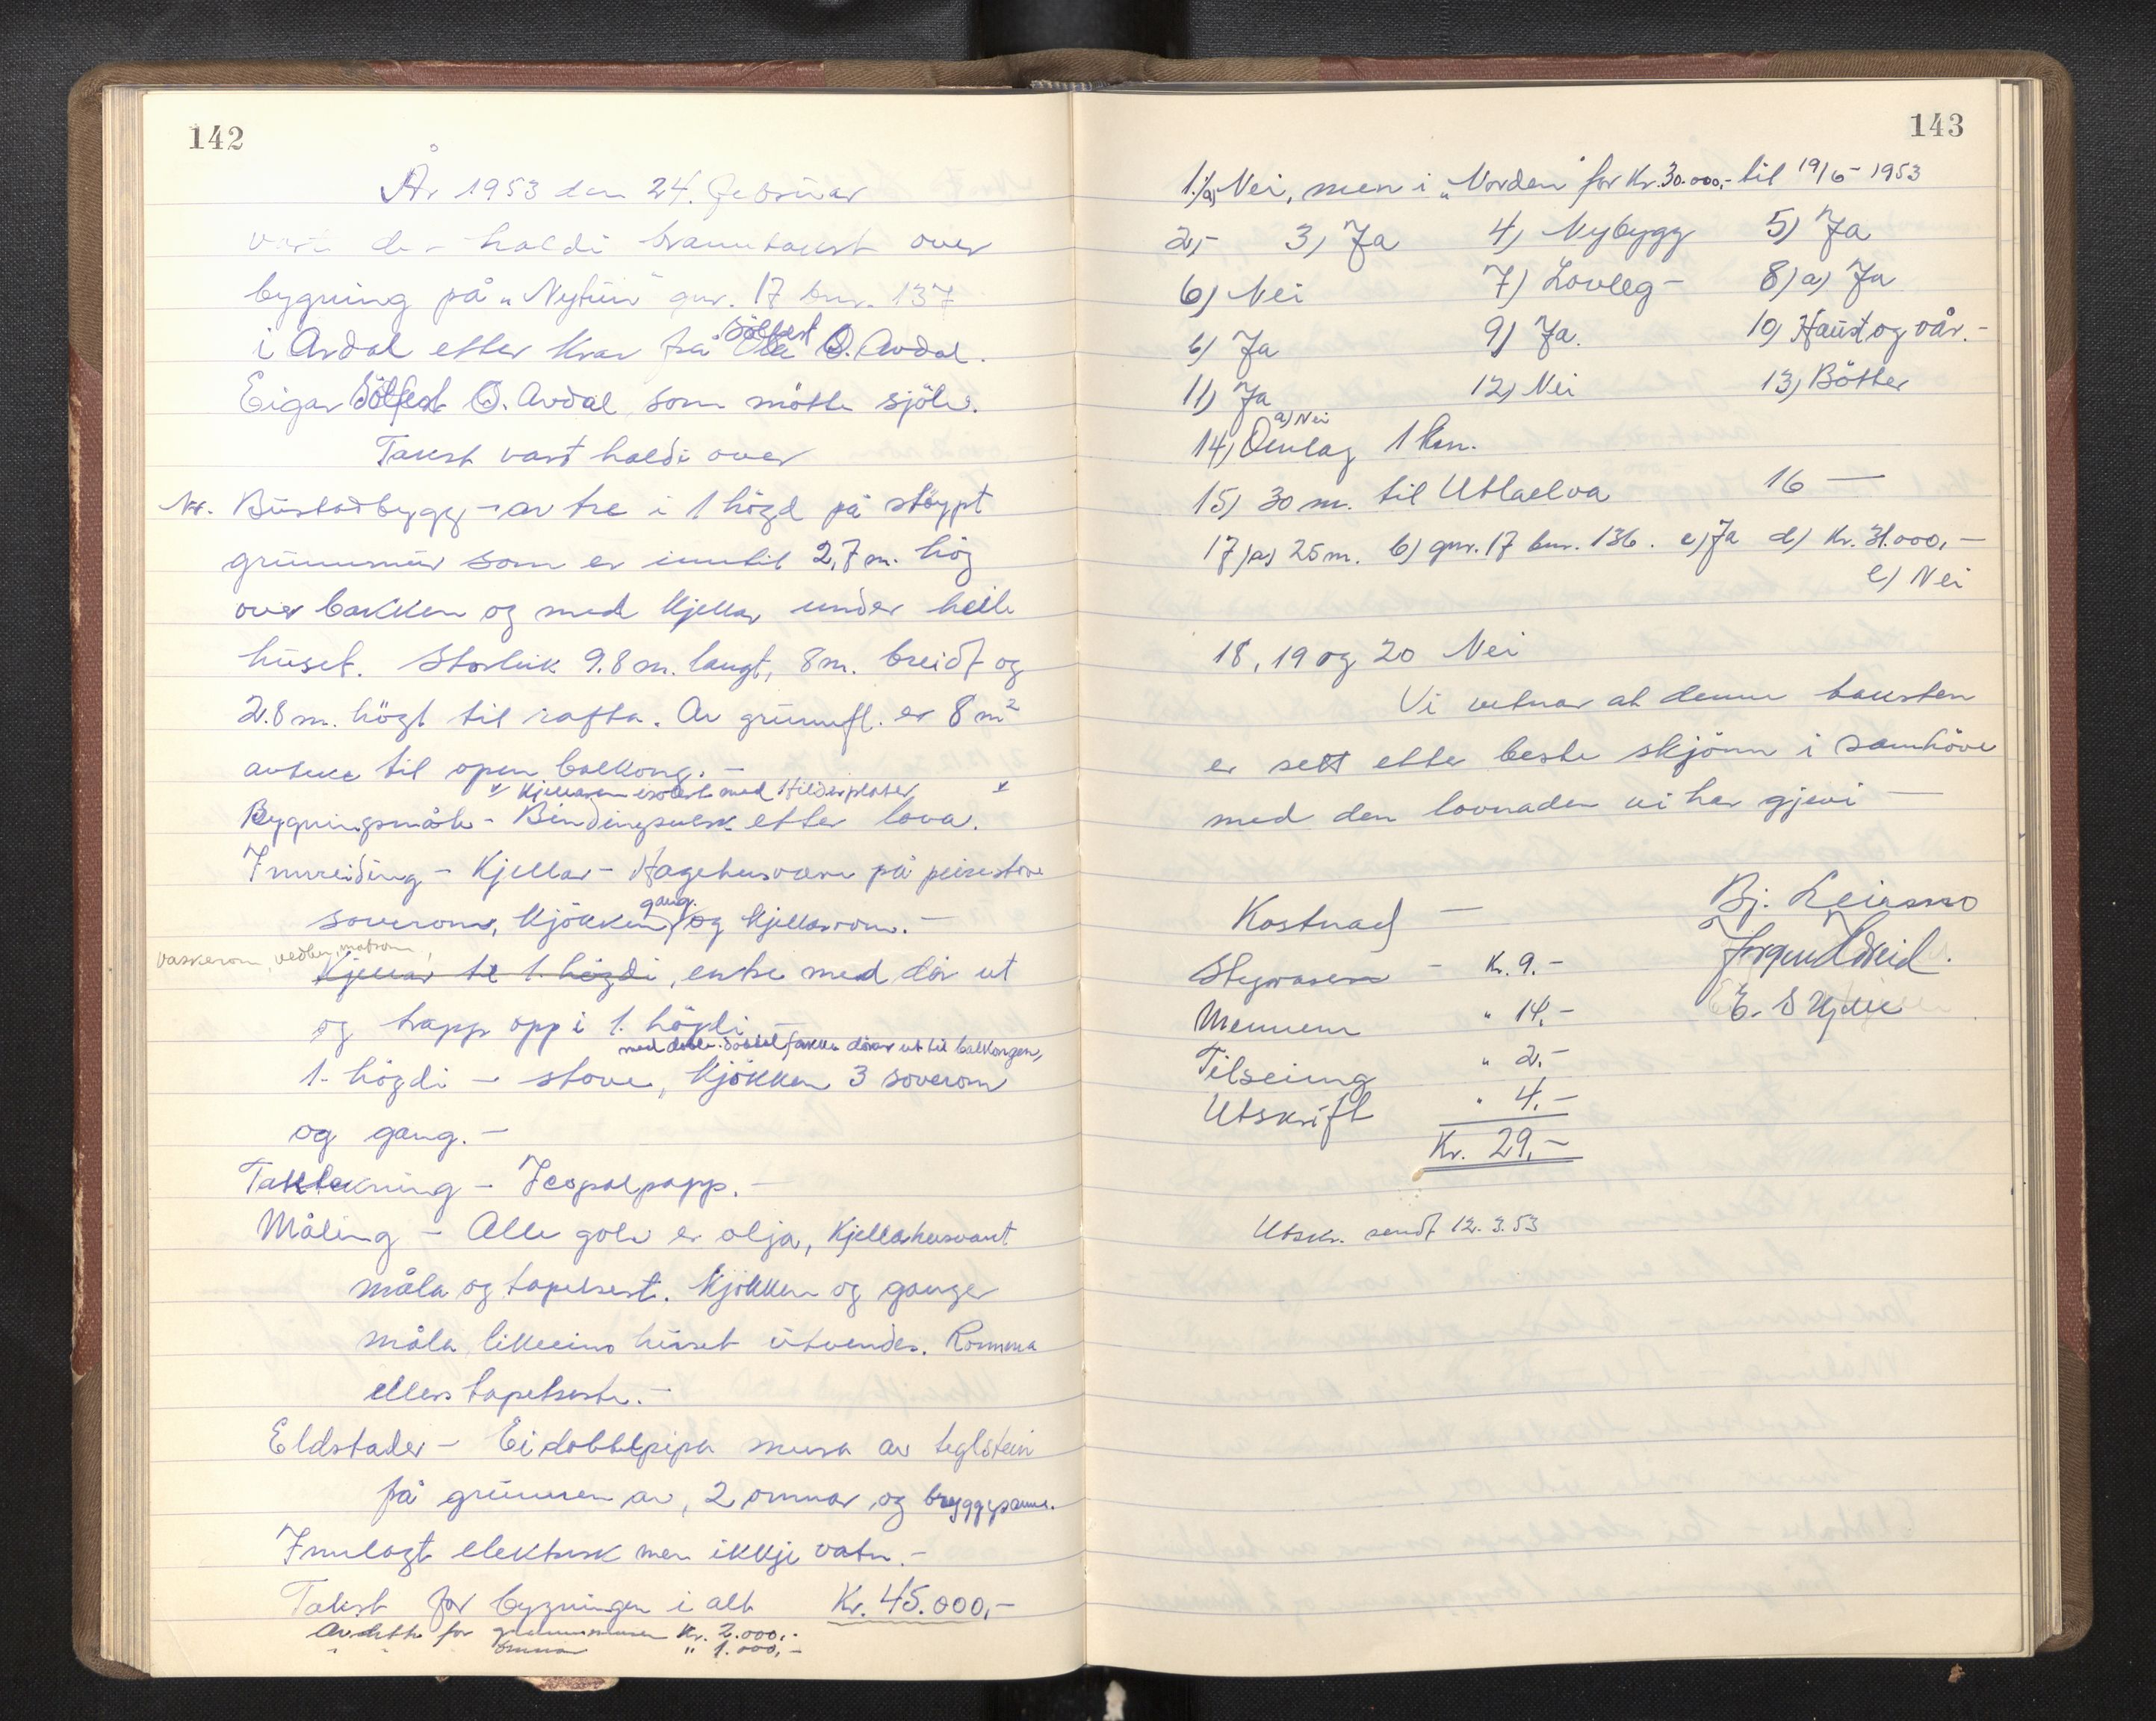 142
År 1953 den 24. februar
vart de haldi branntakst over
bygning på „Nytun" gnr. 17 bnr. 137
i Årdal etter krav frå Sölfest O. Avdal.
Eigar Sölfest O. Avdal som møtte sjölv.
Takst vart haldi over
Nr. Bustadbygg - av tre i 1 högd på støypt
grunnmur som er inntil 2,7 m. hög
over bakken og med kjellar under heile
huset. Storleik 9.8 m. langt, 8 m. breidt og
2.8 m. högt til rafta. Av grunnfl. er 8 m²
avteke til open balkong. -
Kjellaren isolert med Hilderplater
Bygningsmåte - Bindingsverk etter lova.
Innreiding - Kjellar - Hagehusvære på peisestove
soverom, kjökken, gang og kjellarrom. -
vaskerom, vedbu, matrom,
Kjellar te 1. högdi, entre med dör ut
og trapp opp i 1. högdi -
med doble dörar ut til balkongen,
1. högdi - stove, kjökken 3 soverom
og gang. -
Taktekning - Icopalpapp. -
Måling - Alle golv er olja, kjellarhusvært
måla og tapetsert. Kjökken og ganger
måla likeeins huset utvendes. Romma
ellers tapetserte. -
Eldstader - Ei dobbelpipa mura av teglstein
frå grunnen av, 2 omnar og bryggepanne.
Innlagt elektrisk men ikkje vatn. -
Takst for bygningen i alt Kr. 45.000,-
Av dette for grunnmuren Kr. 2.000,-
" " omnar " 1.000,-
143
1./a) Nei, men i „Norden" for Kr. 30.000,- til 19/6 - 1953
2,- 3) Ja 4) Nybygg 5) Ja
6) Nei 7) Lovleg - 8) a) Ja
b) Ja 9) Ja. 10) Haust og vår. -
11) Ja 12) Nei 13) Bötter
a) Nei
14) Omlag 1 km.
15) 30 m. til Utlaelva 16 —
17) a) 25 m. b) gnr. 17 bnr. 136. c) Ja d) Kr. 31.000,-
e) Nei
18, 19 og 20 Nei
Vi vitnar at denne taksten
er sett etter beste skjönn i samhöve
med den lovnaden vi har gjevi —
Kostnad —
Bj. Leirmo
Styraren - Kr. 9.-
Mennene " 14.-
Tilseing " 2.-
Utskrift " 4.-
Kr. 29.-
Utskr. sendt 12.3.53